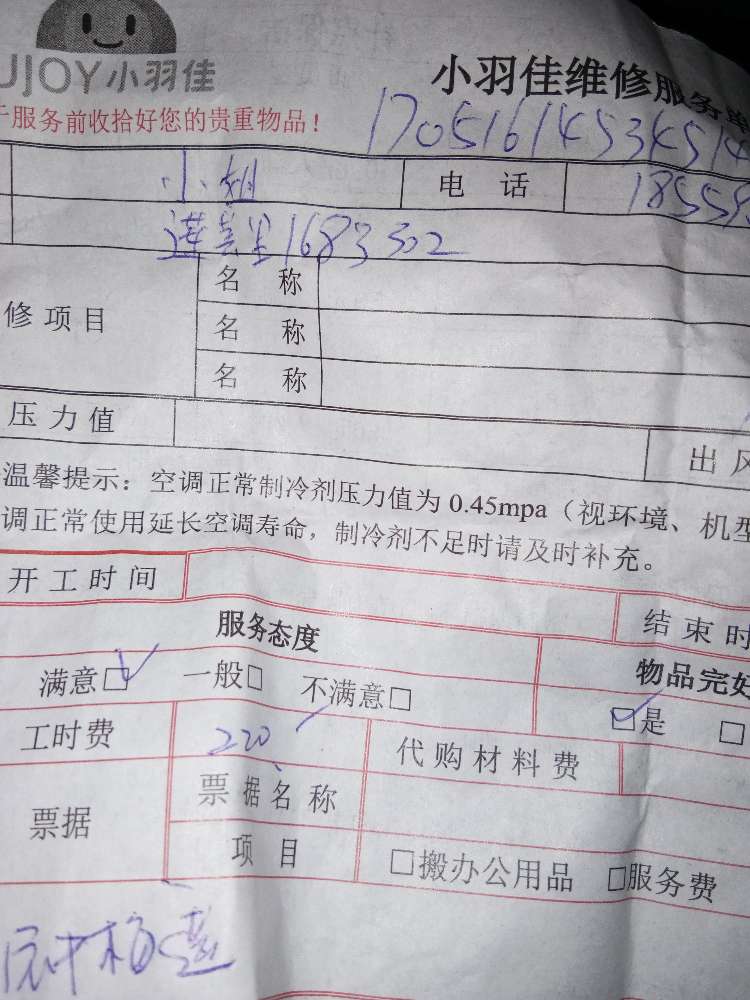 UJOY小羽佳
小羽佳维修服务单
于服务前收拾好您的贵重物品！
17051614534514
小姐
电 话
18555
莲美里1683302
修项目
名 称
名 称
名 称
压力值
出风
温馨提示：空调正常制冷剂压力值为 0.45mpa（视环境、机型
调正常使用延长空调寿命，制冷剂不足时请及时补充。
开工时间
结束时
服务态度
物品完好
满意☑ 一般□ 不满意□
☑是 □
工时费
220
代购材料费
票据
票据名称
项 目
□搬办公用品 □服务费